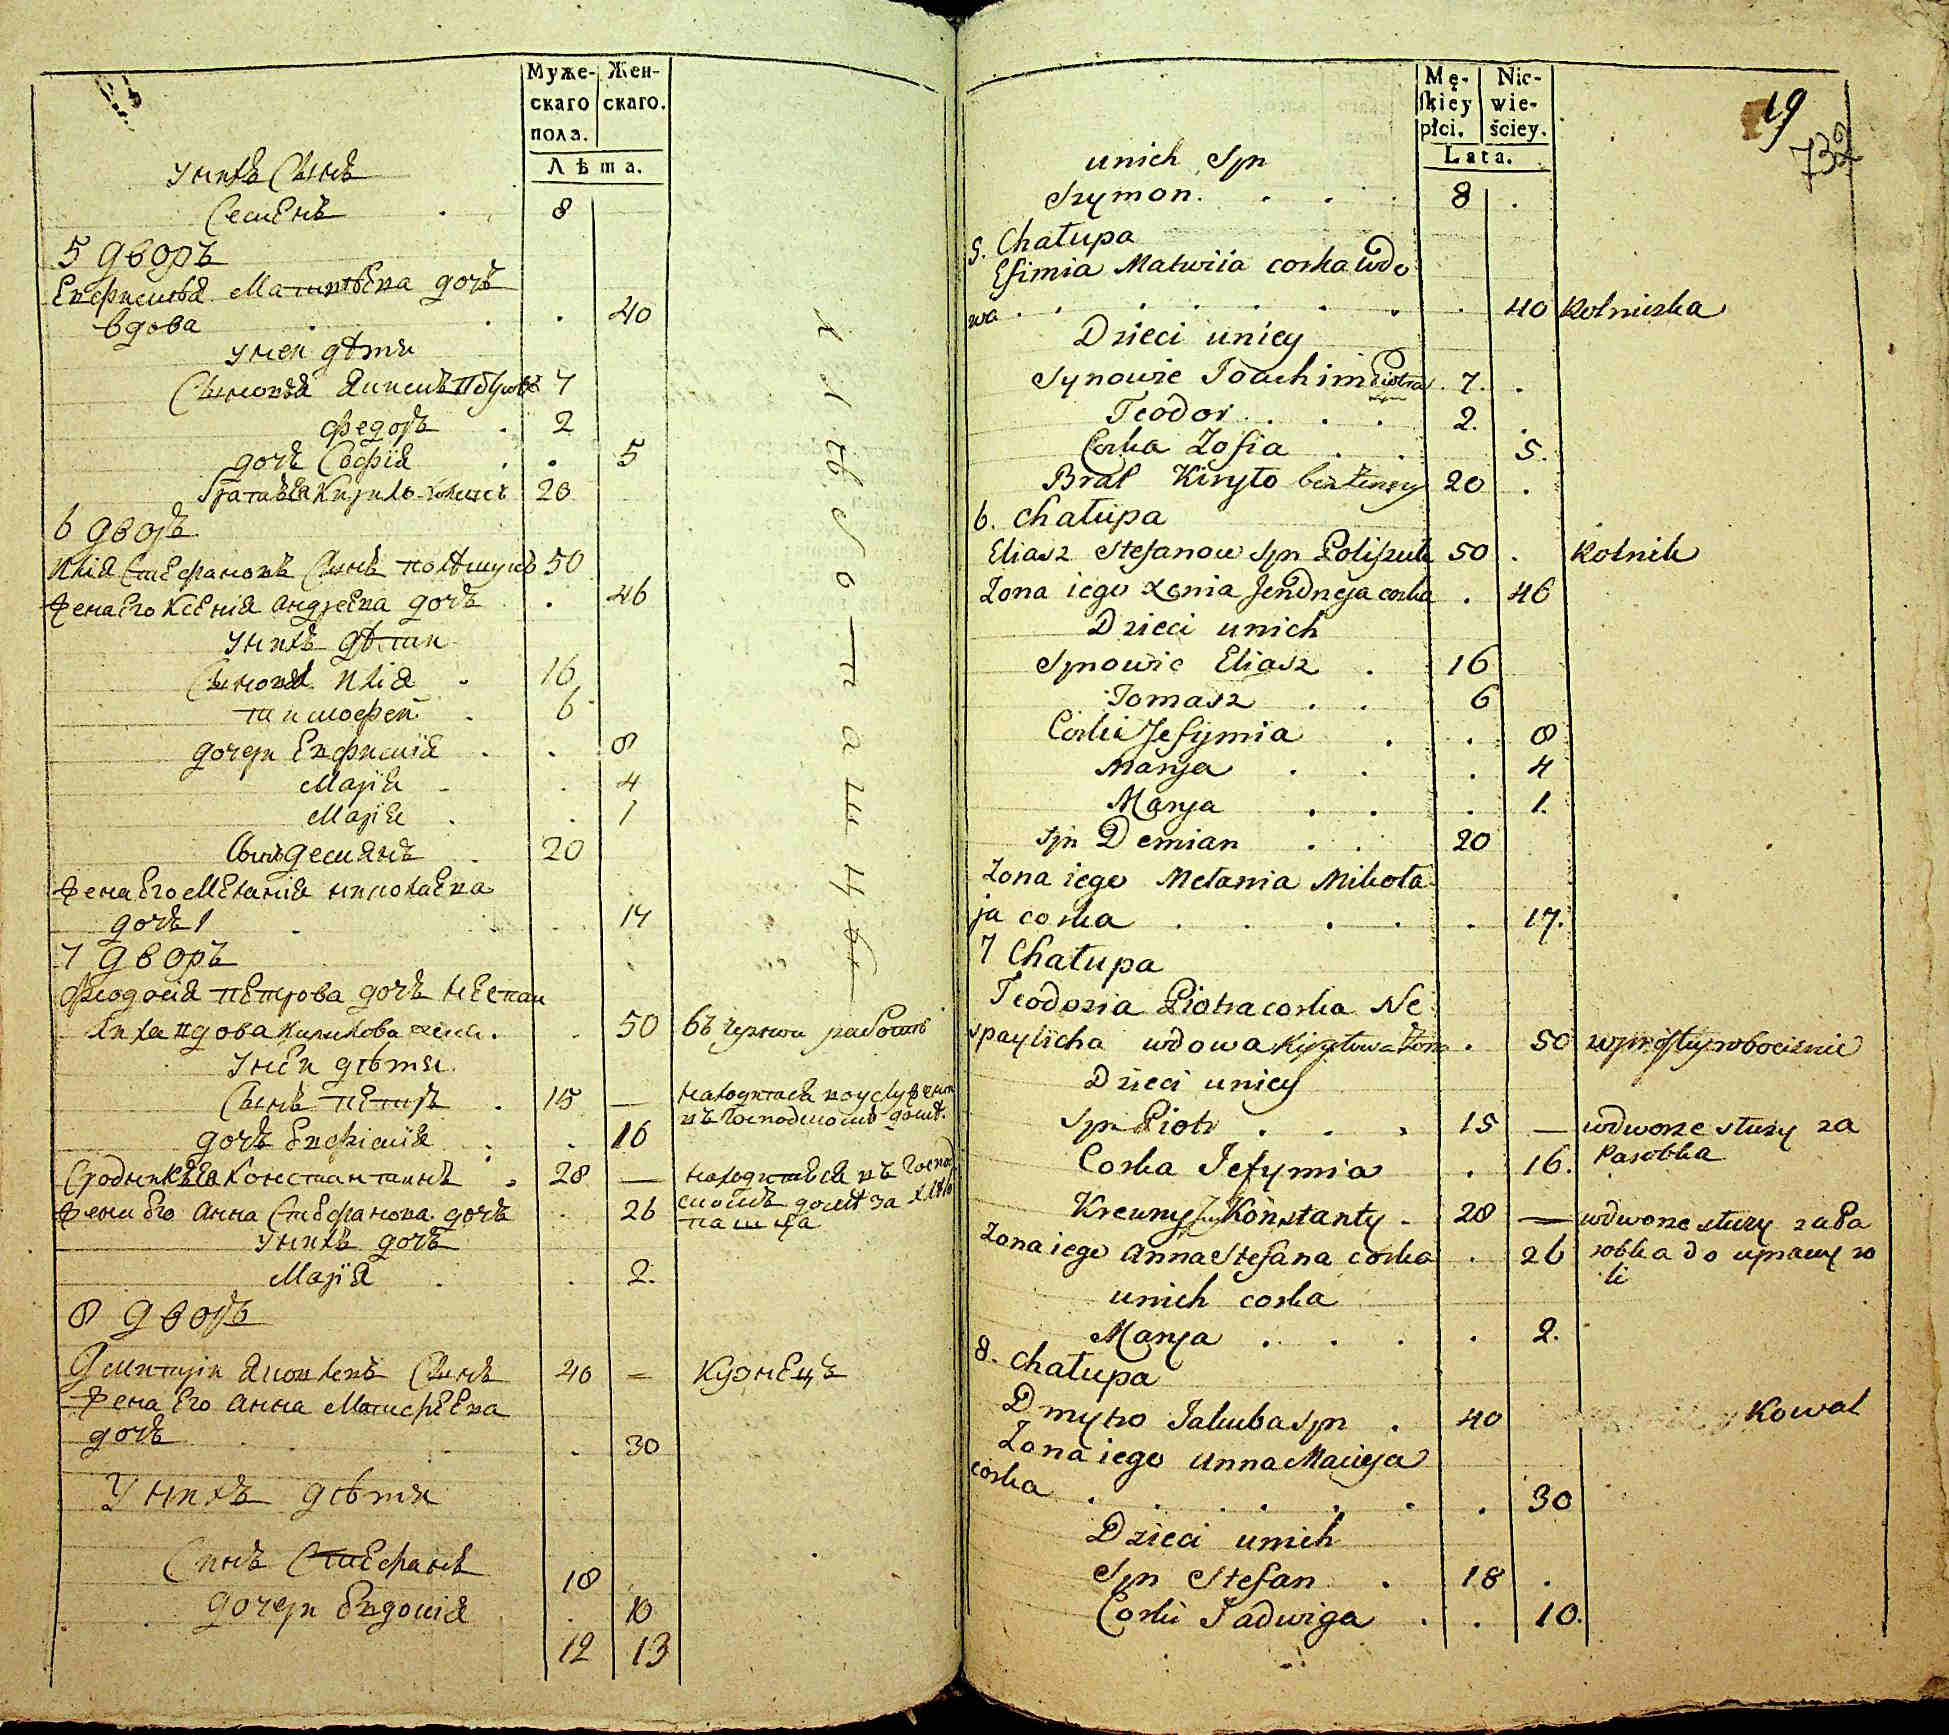 Муже-
скаго
пола.
Жен-
скаго.
Лѣта.
унихъ Сынъ
Семенъ . 8
5 дворъ
Евфимия Матвѣева дочъ
вдова . . . 40
уней дѣти
Сыновья Яким 7
Федоръ . 2
дочъ Софїя . . 5
братъ Кирило 20
6 дворъ
Илїя Стефановъ Сынъ полѣщукъ 50
жена Его Ксенїя Андреева дочъ . 46
унихъ дѣти
Сыновья Илїя . 16
тимофей . 6
дочери Евфимїя . . 8
Марїя . . 4
Марїя . . 1
Сынъ демянъ . 20
жена Его Меланїя николаева
дочъ . . 17
7 дворъ
Феодосїя петрова дочъ неспай
лиха вдова Кирилова жена . . 50 въ черной работе
уней дѣти
Сынъ петръ . 15 — находится в услужении
въ Господскомъ домѣ.
дочъ Евфимїя . . 16
Сродникъ Константинъ . 28 — находится въ Господ
жена Его Анна Стефанова дочъ . 26 скомъ домѣ за хлѣбо
пашца
унихъ дочъ
Марїя . . 2.
8 дворъ
Дмитрїй Яковлевъ Сынъ 40 – кузнецъ
жена Его Анна Матфеева
дочъ . . . 30
Унихъ дѣти
Синъ Стефанъ 18
дочери Евдокїя . 10
12 13
хлѣбопашцы
Mę-
skiey
płci.
Nie-
wie-
ściey.
Lata.
19
732
unich Syn
Szymon. . . . 8 .
5. Chałupa
Efimia Matwiia corka wdo
wa . . . . . . . 40 Rolniczka
Dzieci unicy
Synowie Joachim Piotra 7. .
Teodor . . . 2. .
Corka Zofia . . 5.
Brat Kiryło bezżenny 20 .
6. Chałupa
Eliasz Stefanow Syn Poliszuk 50 . Rolnik
Zona iego Xenia Jendrzeja corka . 46
Dzieci unich
Synowie Eliasz . 16
Tomasz . . 6
Corki Jefymia . . 8
Marya . . . 4
Marya . . . 1.
Syn Demian . . 20
Zona iego Melania Mikoła
ja corka . . . . . 17.
7 Chałupa
Teodozia Piotra corka Ne
spaylicha wdowa Kiryłowa Żona . 50 w prostey robociznie
Dzieci unicy
Syn Piotr . . . 15 — wdworze służy za
Parobka
Corka Jefymia . 16.
Krewny Konstanty . 28 — wdworze służy zaPa
Zona iego Anna Stefana corka . 26 robka do uprawy ro
li
unich corka
Marya . . . . . 2.
8. Chałupa
Dmytro Jakuba syn . 40 Kowal
Zona iego Anna Macieja
corka . . . . . . . 30
Dzieci unich
Syn Stefan . 18 .
Corki Jadwiga . . 10.